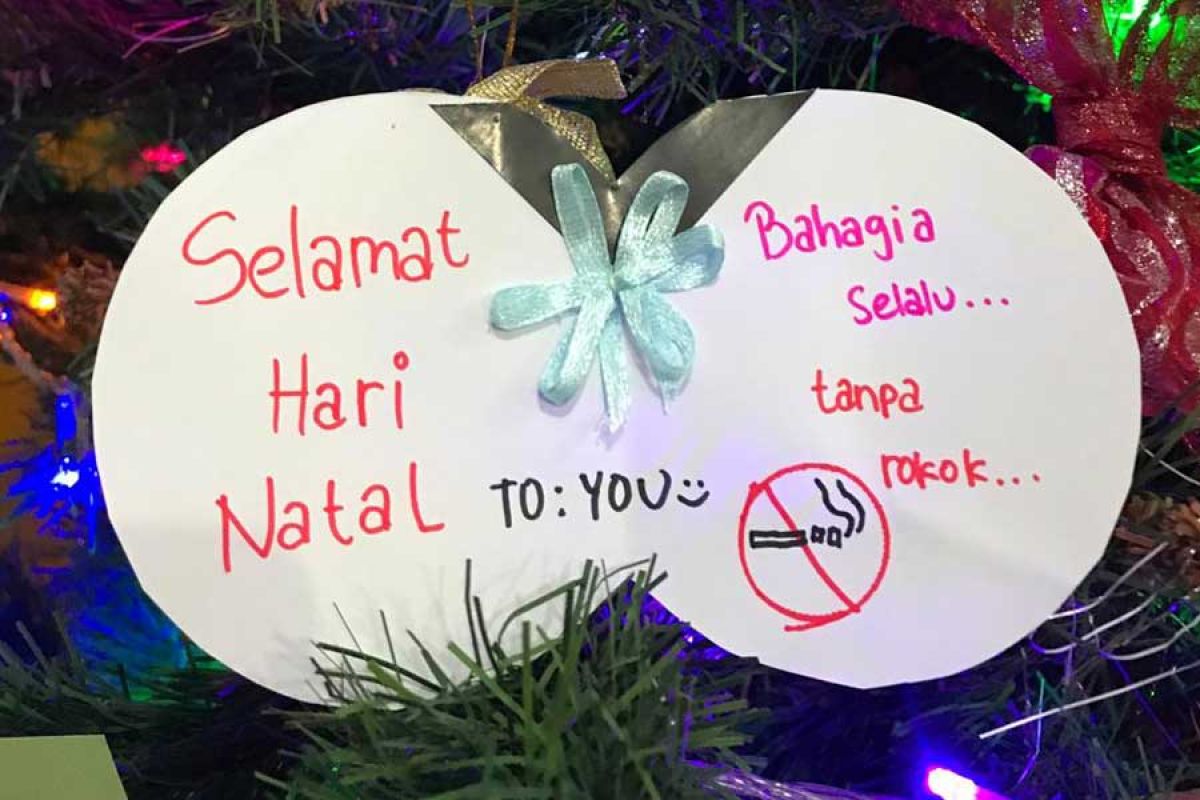 Selamat
Hari
Natal
TO: YOU
Bahagia
selalu...
tanpa
rokok...